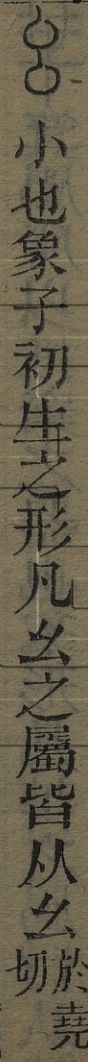 幺小也象子初生之形凡幺之屬皆从幺於堯切